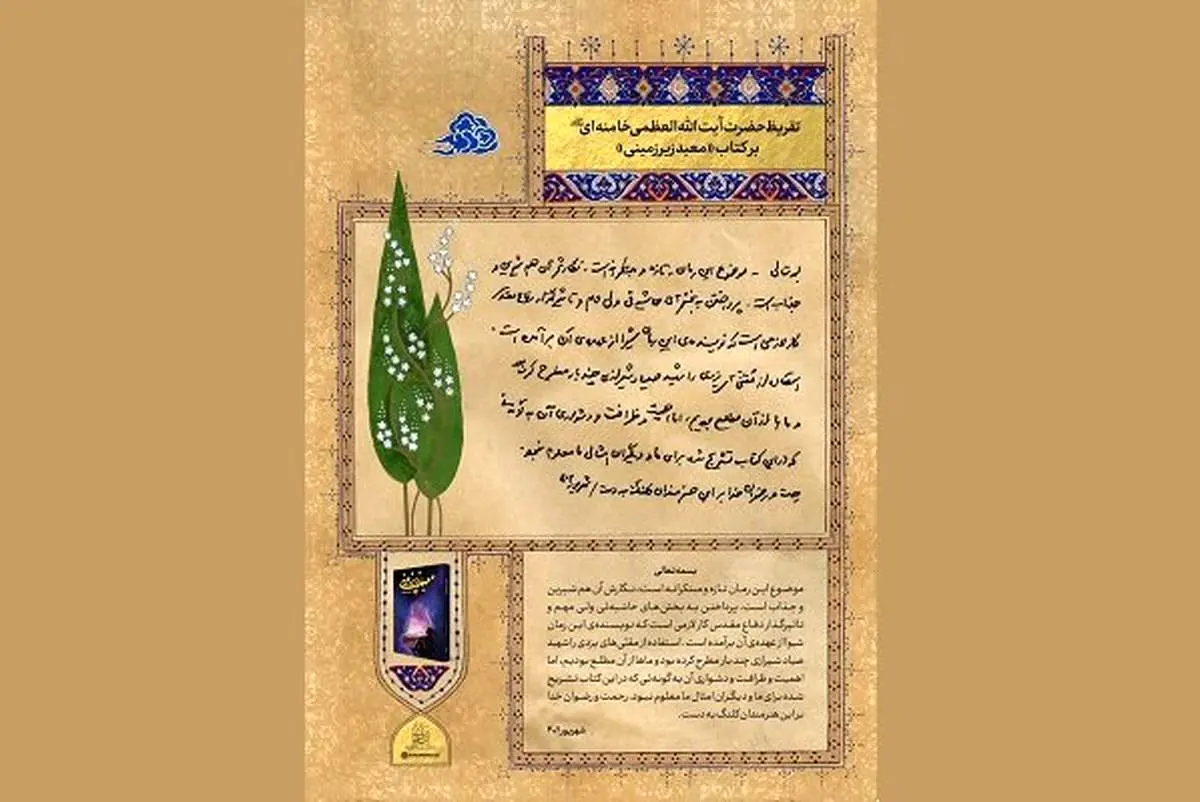 تقریظ حضرت آیت الله العظمی خامنه‌ای
بر کتاب «معبد زیرزمینی»
بسمه تعالی - موضوع این رمان، تازه و مبتکرانه است. نگارش آن هم شیرین و
جذاب است. پرداختن به بخش‌های حاشیه‌ئی ولی مهم و تأثیرگذار دفاع مقدس
کار لازمی است که نویسنده‌ی این رمان شیوا از عهده‌ی آن برآمده است.
استفاده از مقنّی‌های یزدی را شهید صیاد شیرازی چند بار مطرح کرده بود
و ماها از آن مطلع بودیم، اما اهمیت و ظرافت و دشواری آن به گونه‌ئی
که در این کتاب تشریح شده برای ما و دیگران امثال ما معلوم نبود.
رحمت و رضوان خدا بر این هنرمندان کلنگ به دست / شهریور ۴۰۱
بسمه تعالی
موضوع این رمان تازه و مبتکرانه است، نگارش آن هم شیرین
و جذاب است. پرداختن به بخش‌های حاشیه‌ئی ولی مهم و
تاثیرگذار دفاع مقدس کار لازمی است که نویسنده‌ی این رمان
شیوا از عهده‌ی آن برآمده است. استفاده از مقنّی‌های یزدی را شهید
صیاد شیرازی چند بار مطرح کرده بود و ماها از آن مطلع بودیم، اما
اهمیت و ظرافت و دشواری آن به گونه‌ئی که در این کتاب تشریح
شده برای ما و دیگران امثال ما معلوم نبود. رحمت و رضوان خدا
بر این هنرمندان کلنگ به دست.
شهریور ۴۰۱